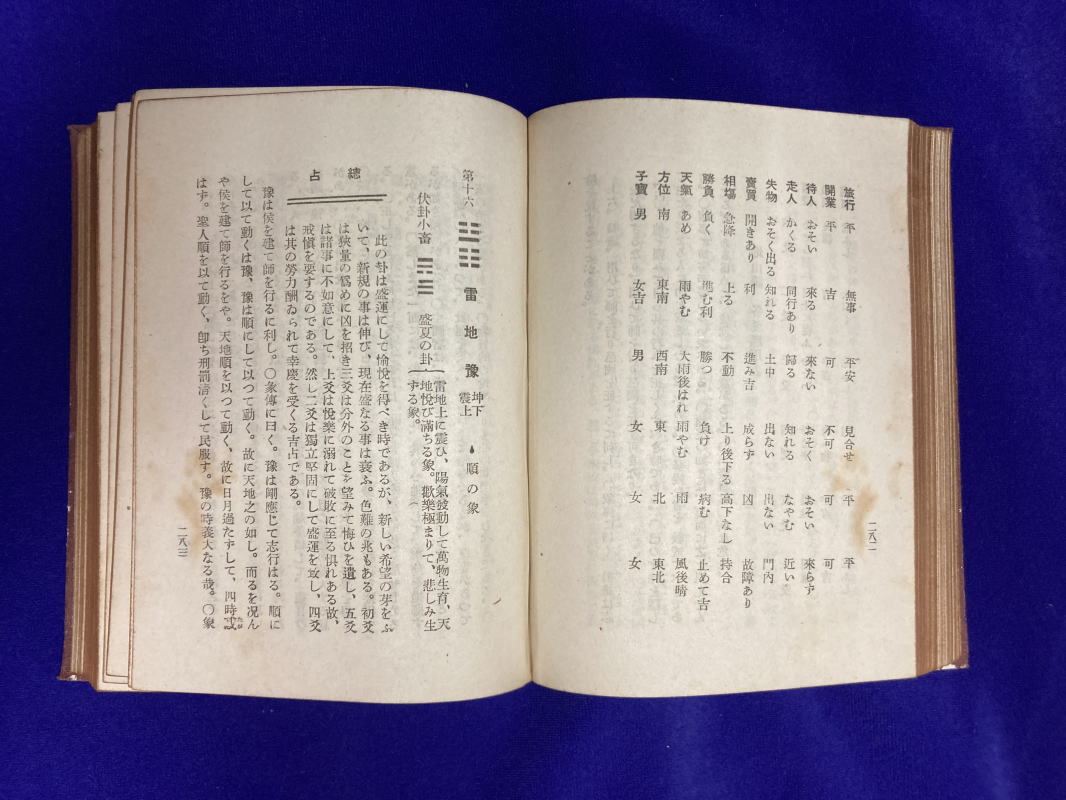 旅行 平 無事 平安 見合せ 平 平
開業 平 吉 可 不可 可 可
待人 おそい 來る 來ない おそく おそい 來らず
走人 かくる 同行あり 歸る 知れる なやむ 近い
失物 おそく出る 知れる 土中 出ない 出ない 門內
賣買 開きあり 利 進み吉 成らず 凶 故障あり
相塲 急降 上る 不動 上り後下る 高下なし 持合
勝負 負く 進む利 勝つ 負け 病む 止めて吉
天氣 あめ 雨やむ 大雨後はれ 雨やむ 雨 風後晴
方位 南 東南 西南 東 北 東北
子寶 男 女吉 男 女 女 女
二八二
第十六 雷地豫 坤下震上 順の象
伏卦小畜 盛夏の卦 雷地上に震ひ、陽氣發動して萬物生育、天
地悅び滿ちる象。歡樂極まりて、悲しみ生
ずる象。
總占
此の卦は盛運にして愉悅を得べき時であるが、新しい希望の芽をふ
いて、新規の事は伸び、現在盛なる事は衰ふ。色難の兆もある。初爻
は狹量の爲めに凶を招き三爻は分外のことを望みて悔ひを遺し、五爻
は諸事に不如意にして、上爻は悅樂に溺れて破敗に至る惧れある故、
戒愼を要するのである。然し二爻は獨立堅固にして盛運を致し、四爻
は其の勞力酬ゐられて幸慶を受くる吉占である。
豫は侯を建て師を行るに利し。〇彖傳に曰く。豫は剛應じて志行はる。順に
して以て動くは豫、豫は順にして以つて動く。故に天地之の如し。而るを况ん
や侯を建て師を行るをや。天地順を以つて動く、故に日月過たずして、四時忒
はず。聖人順を以て動く、卽ち刑罰淸くして民服す。豫の時義大なる哉。〇象
二八三